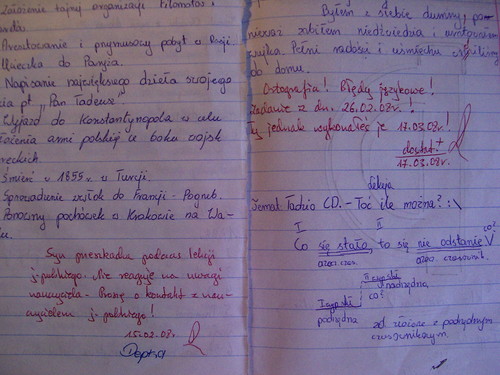 Założenie tajnej organizacji Filomatów
Aresztowanie i przymusowy pobyt w Rosji
Ucieczka do Paryża.
Napisanie największego dzieła swojego
pt „Pan Tadeusz"
Wyjazd do Konstantynopola w celu
armi polskiej u boku wojsk
Śmierć w 1855 r. w Turcji.
Sprowadzenie zwłok do Francji - Pogrzeb.
Ponowny pochówek w Krakowie na Wa-
Syn przeszkadza podczas lekcji
j. polskiego. Nie reaguje na uwagi
nauczyciela - Proszę o kontakt z nau-
czycielem j. polskiego!
15.02.08r.
Byłem z siebie dumny, po-
nieważ zabiłem niedźwiedzia i
Pełni radości i uśmiechu
do domu.
Ortografia! Błędy językowe!
Zadanie z dn. 26.02.08r.!
Ty jednak wykonałeś je 17.03.08r.!
dostat.+
17.03.08r.
Lekcja
Temat: Radio CD. - Toć ile można? :\
I II
Co się stało, to się nie odstanie co?
orzeczenie
II
nadrzędna
co?
I
podrzędna
zd. złożone z podrzędnym